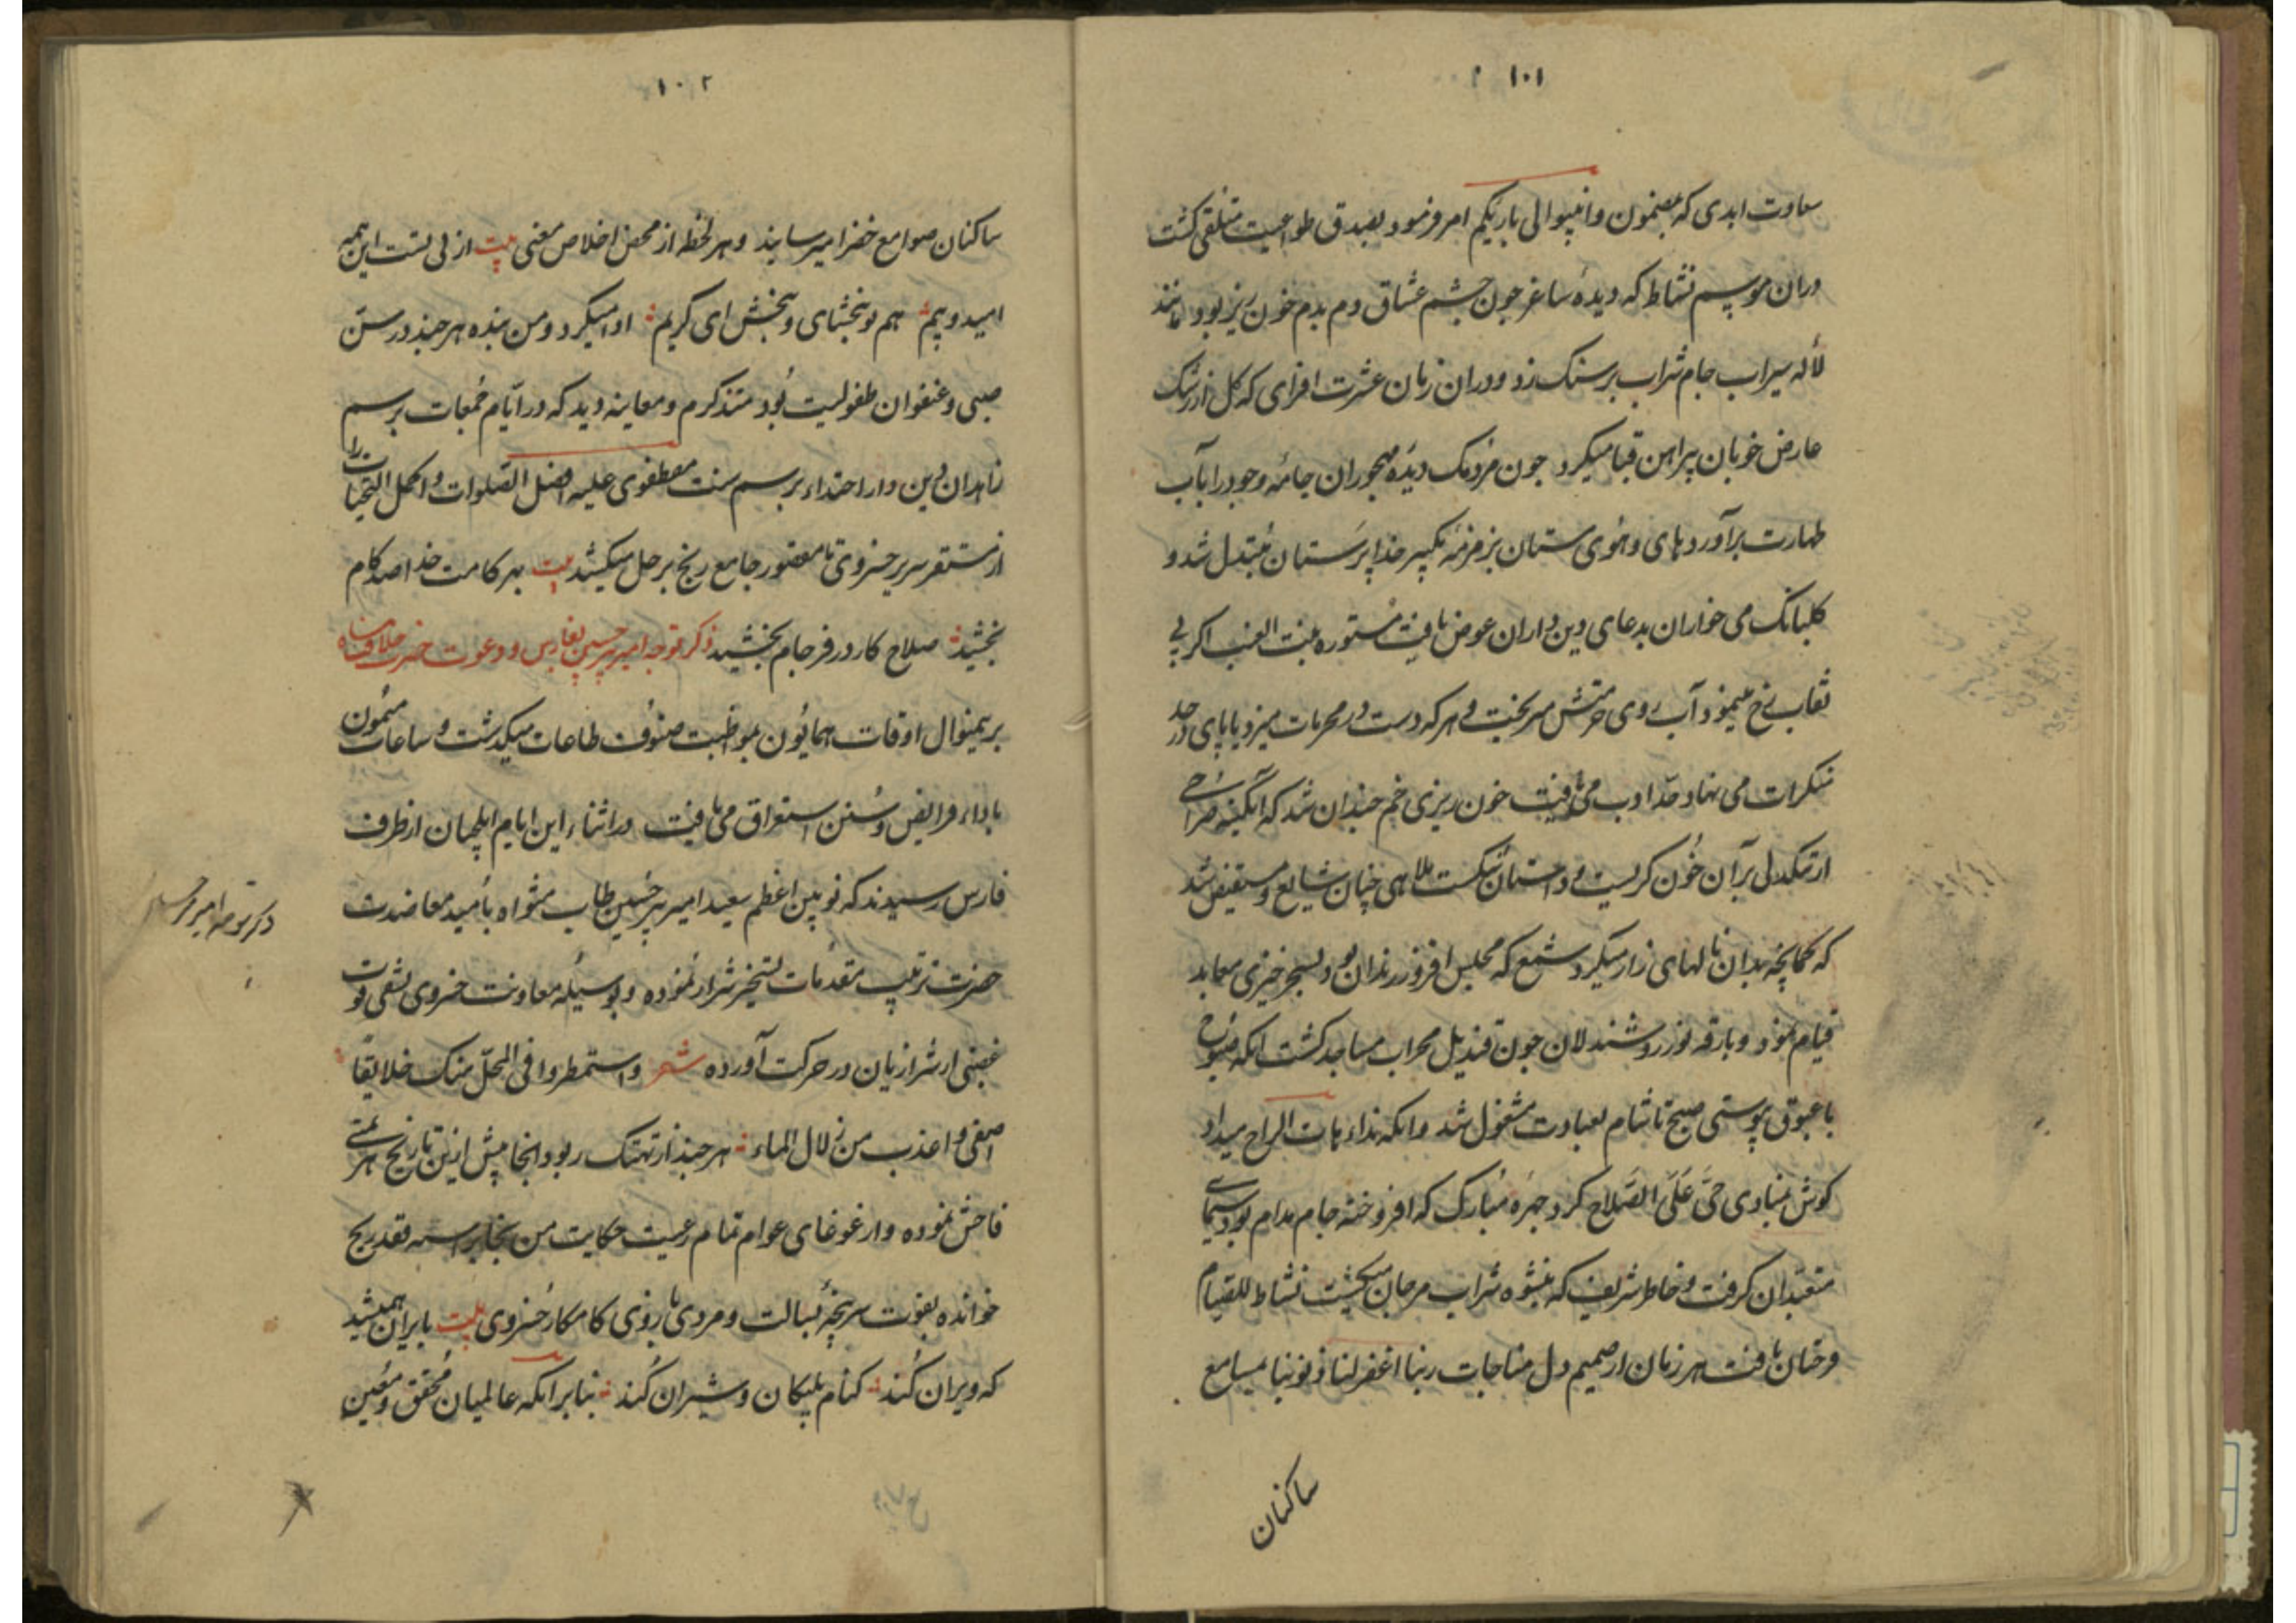 ١٠١
سعادت ابدی که بمضمون وانیبوا الی ربکم امر فرمود بصدق طواعیت متلقی کشت
دران موسم نشاط که دیده ساغر چون چشم عشاق دم بدم خون ریز بود مانند
لاله سیراب جام شراب بر سنک زد ودران زمان عشرت افزای که کل از رشک
عارض خوبان پیراهن قبا میکرد چون مردمک دیده مهجوران جامه وجود را بآب
طهارت برآورد های وهوی مستان بزمزمه تکبیر خدا پرستان مبتدل شد و
کلبانک می خواران بدعای دین داران عوض یافت مستوره بنت العنب اکر بی
نقاب رخ مینمود آب روی حرمتش میریخت و هر که دست در محرمات میزد یا پای در حد
منکرات می نهاد حد ادب می یافت خون ریزی خم چندان شد که آبکینه صراحی
از تنکدلی بر آن خون کریست و داستان شکست ملاهی چنان شایع و مستفیض شد
که کمانچه بدان نالهای زار میکرد شمع که مجلس افروز رندان بود بسحر خیزی معابد
قیام نمود و بارقه نور روشندلان چون قندیل محراب مساجد کشت انکه صبوح
با غبوق پیوستی صبح تا شام بعبادت مشغول شد وانکه نداء هات الراح میداد
کوش بمنادی حی علی الصلاح کرد چهره مبارک که افروخته جام مدام بود سیمای
متعبدان کرفت و خاطر شریف که بنشوه شراب مرجان میکشت نشاط للقیام
وختان یافت هر زمان از صمیم دل مناجات ربنا اغفر لنا ذنوبنا بمسامع
ساکنان
١٠٢
ساکنان صوامع خضرا میرسانید و هر لحظه از محض اخلاص معنی بیت از پی تست این همه
امید و بیم هم تو ببخشای و ببخش ای کریم ادا میکرد ومن بنده هر چند در سن
صبی و عنفوان طفولیت بود متذکرم و معاینه دید که در ایام جمعات بر سم
زاهدان دین دار احتذاء برسم سنت مصطفوی علیه افضل الصلوات و اکمل التحیات را
از مستقر سریر خسروی تا مقصوره جامع رنج برجل میکشید بیت بهر کامت خدا صد کام
بخشید صلاح کار در فرجام بخشید ذکر توجه امیر پیر حسین بفارس و دعوت حضرت خلافت پناه
بر یمنوال اوقات همایون بمواظبت صنوف طاعات میکذشت و ساعات میمون
باداء فرایض و سنن استغراق می یافت در اثناء این ایام ایلچیان از طرف
فارس رسیدند که نویین اعظم سعید امیر پیر حسین طاب مثواه بامید معاضدت
حضرت ترتیب مقدمات تسخیر شیراز نموده و بوسیله معاونت خسروی تشفی قوت
غضبی از شیرازیان در حرکت آورده شعر و استمطروا فی المحل منک خلایقا
اصفی و اعذب من زلال الماء هر چند از تهتک ربود و انجا پیش ازین تاریخ هزیمتی
فاحش نموده و از غوغای عوام تمام رعیت حکایت من نجا براسه فقد ربح
خوانده بقوت سرپنجه بسالت و مردی بازوی کامکار خسروی بیت بایران همیشید
که ویران کند کنام پلنکان و شیران کند بنابر انکه عالمیان محقق و معین
ذکر توجه امیر پیر حسین